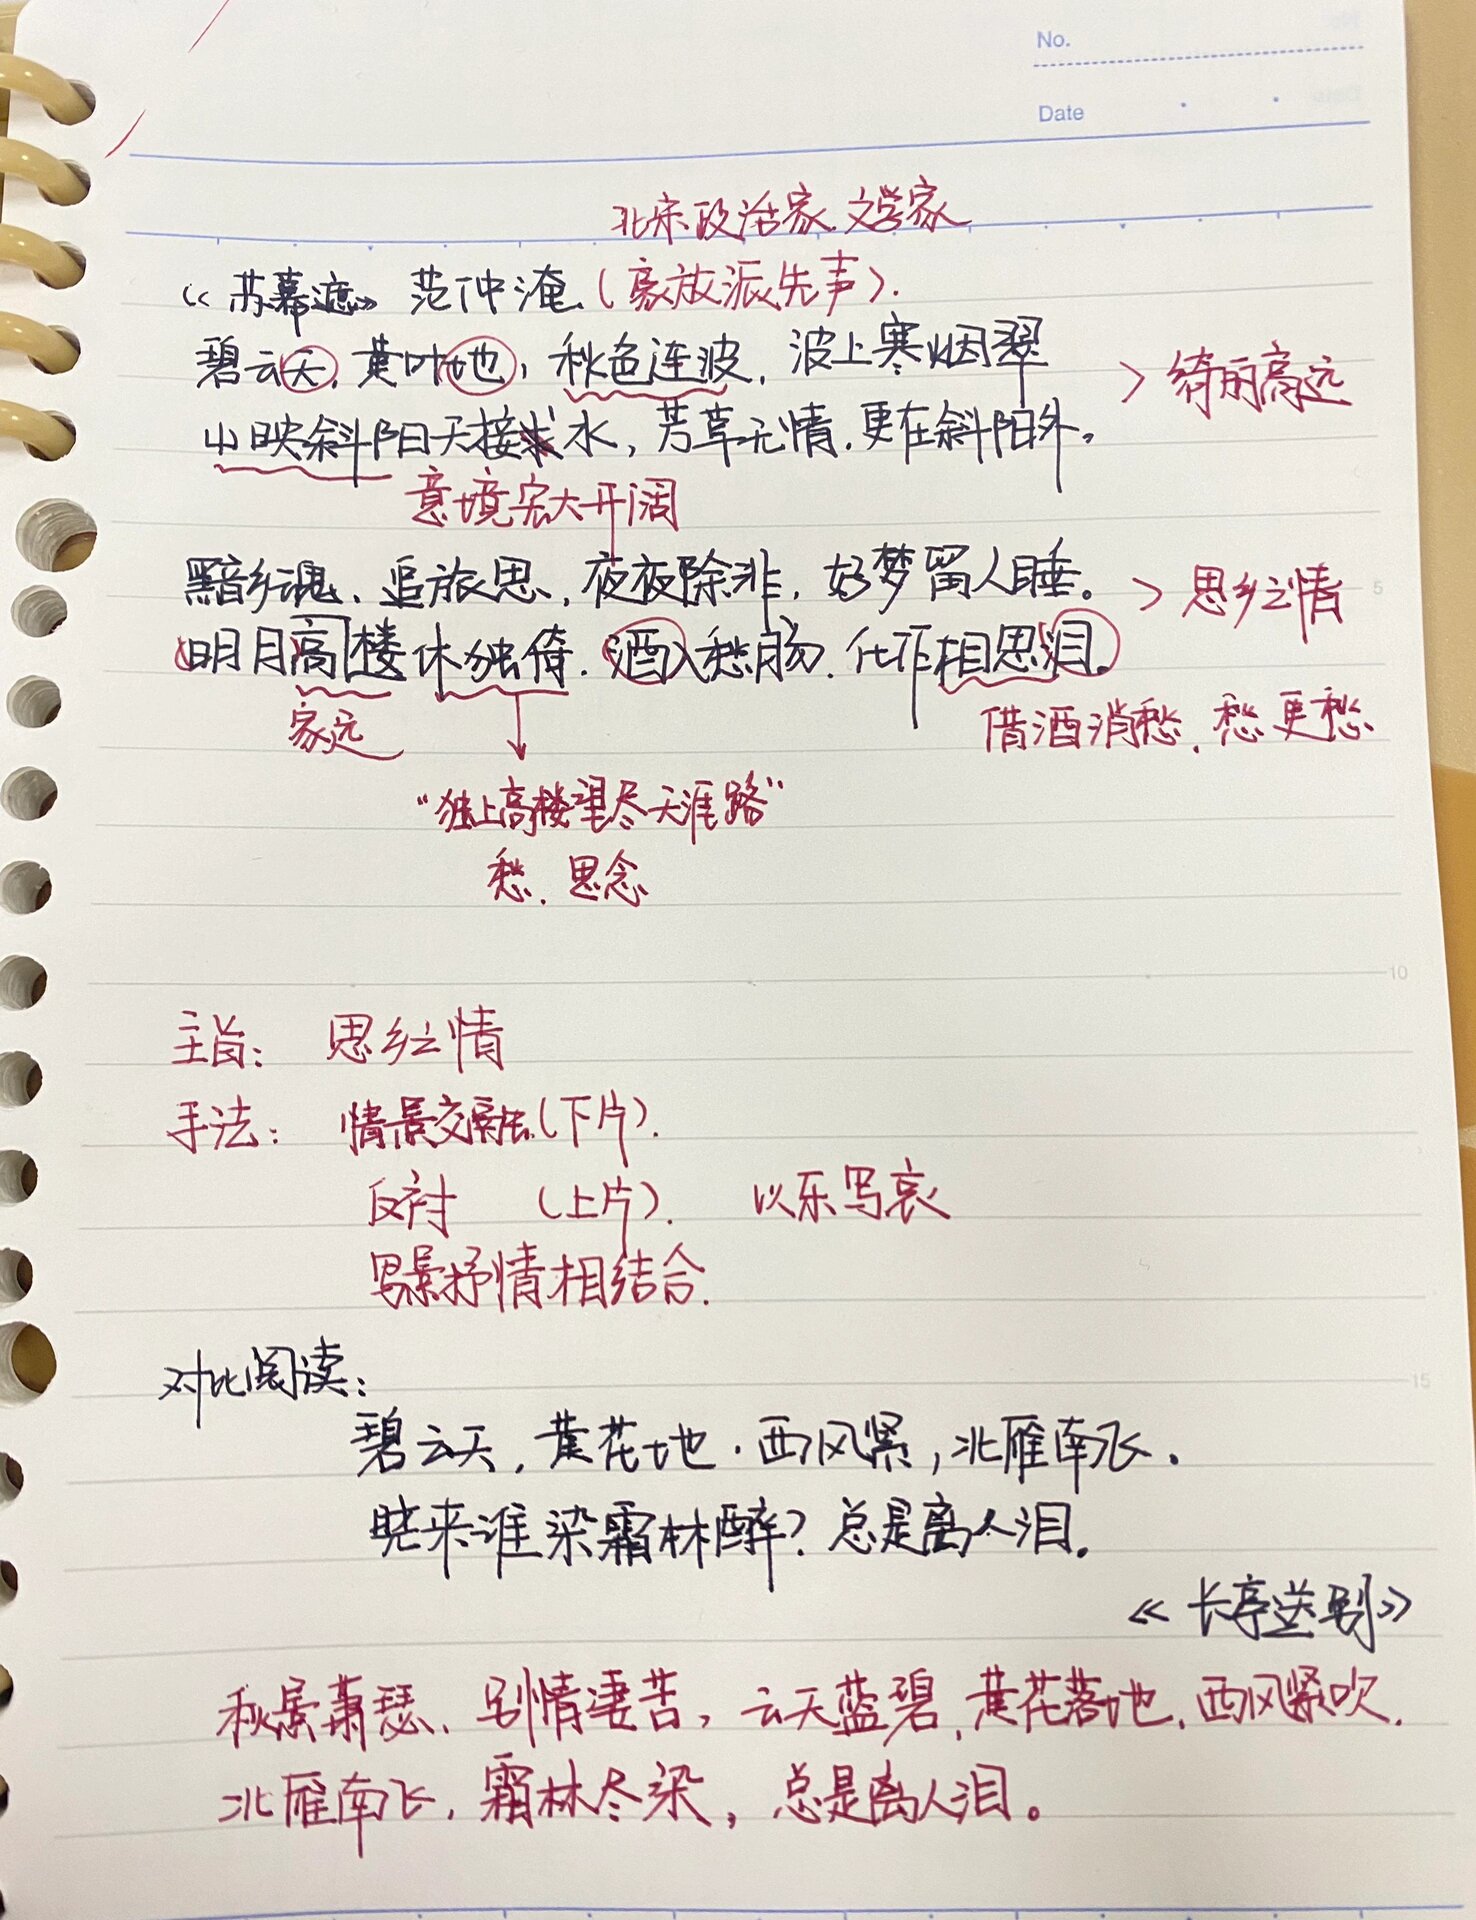 No.
Date
北宋政治家.文学家
《苏幕遮》 范仲淹(豪放派先声).
碧云天,黄叶地,秋色连波,波上寒烟翠 > 绮丽高远
山映斜阳天接水,芳草无情,更在斜阳外。
意境宏大开阔
黯乡魂、追旅思,夜夜除非,好梦留人睡。 > 思乡之情
明月高楼休独倚.酒入愁肠.化作相思泪。
家远 借酒消愁,愁更愁
“独上高楼望尽天涯路”
愁、思念
主旨: 思乡之情
手法: 情景交融(下片).
反衬 (上片). 以乐写哀
写景抒情相结合.
对比阅读:
碧云天,黄花地.西风紧,北雁南飞.
晓来谁染霜林醉?总是离人泪。
《长亭送别》
秋景萧瑟、别情凄苦,云天蓝碧,黄花落地,西风紧吹,
北雁南飞,霜林尽染,总是离人泪。
5
10
15